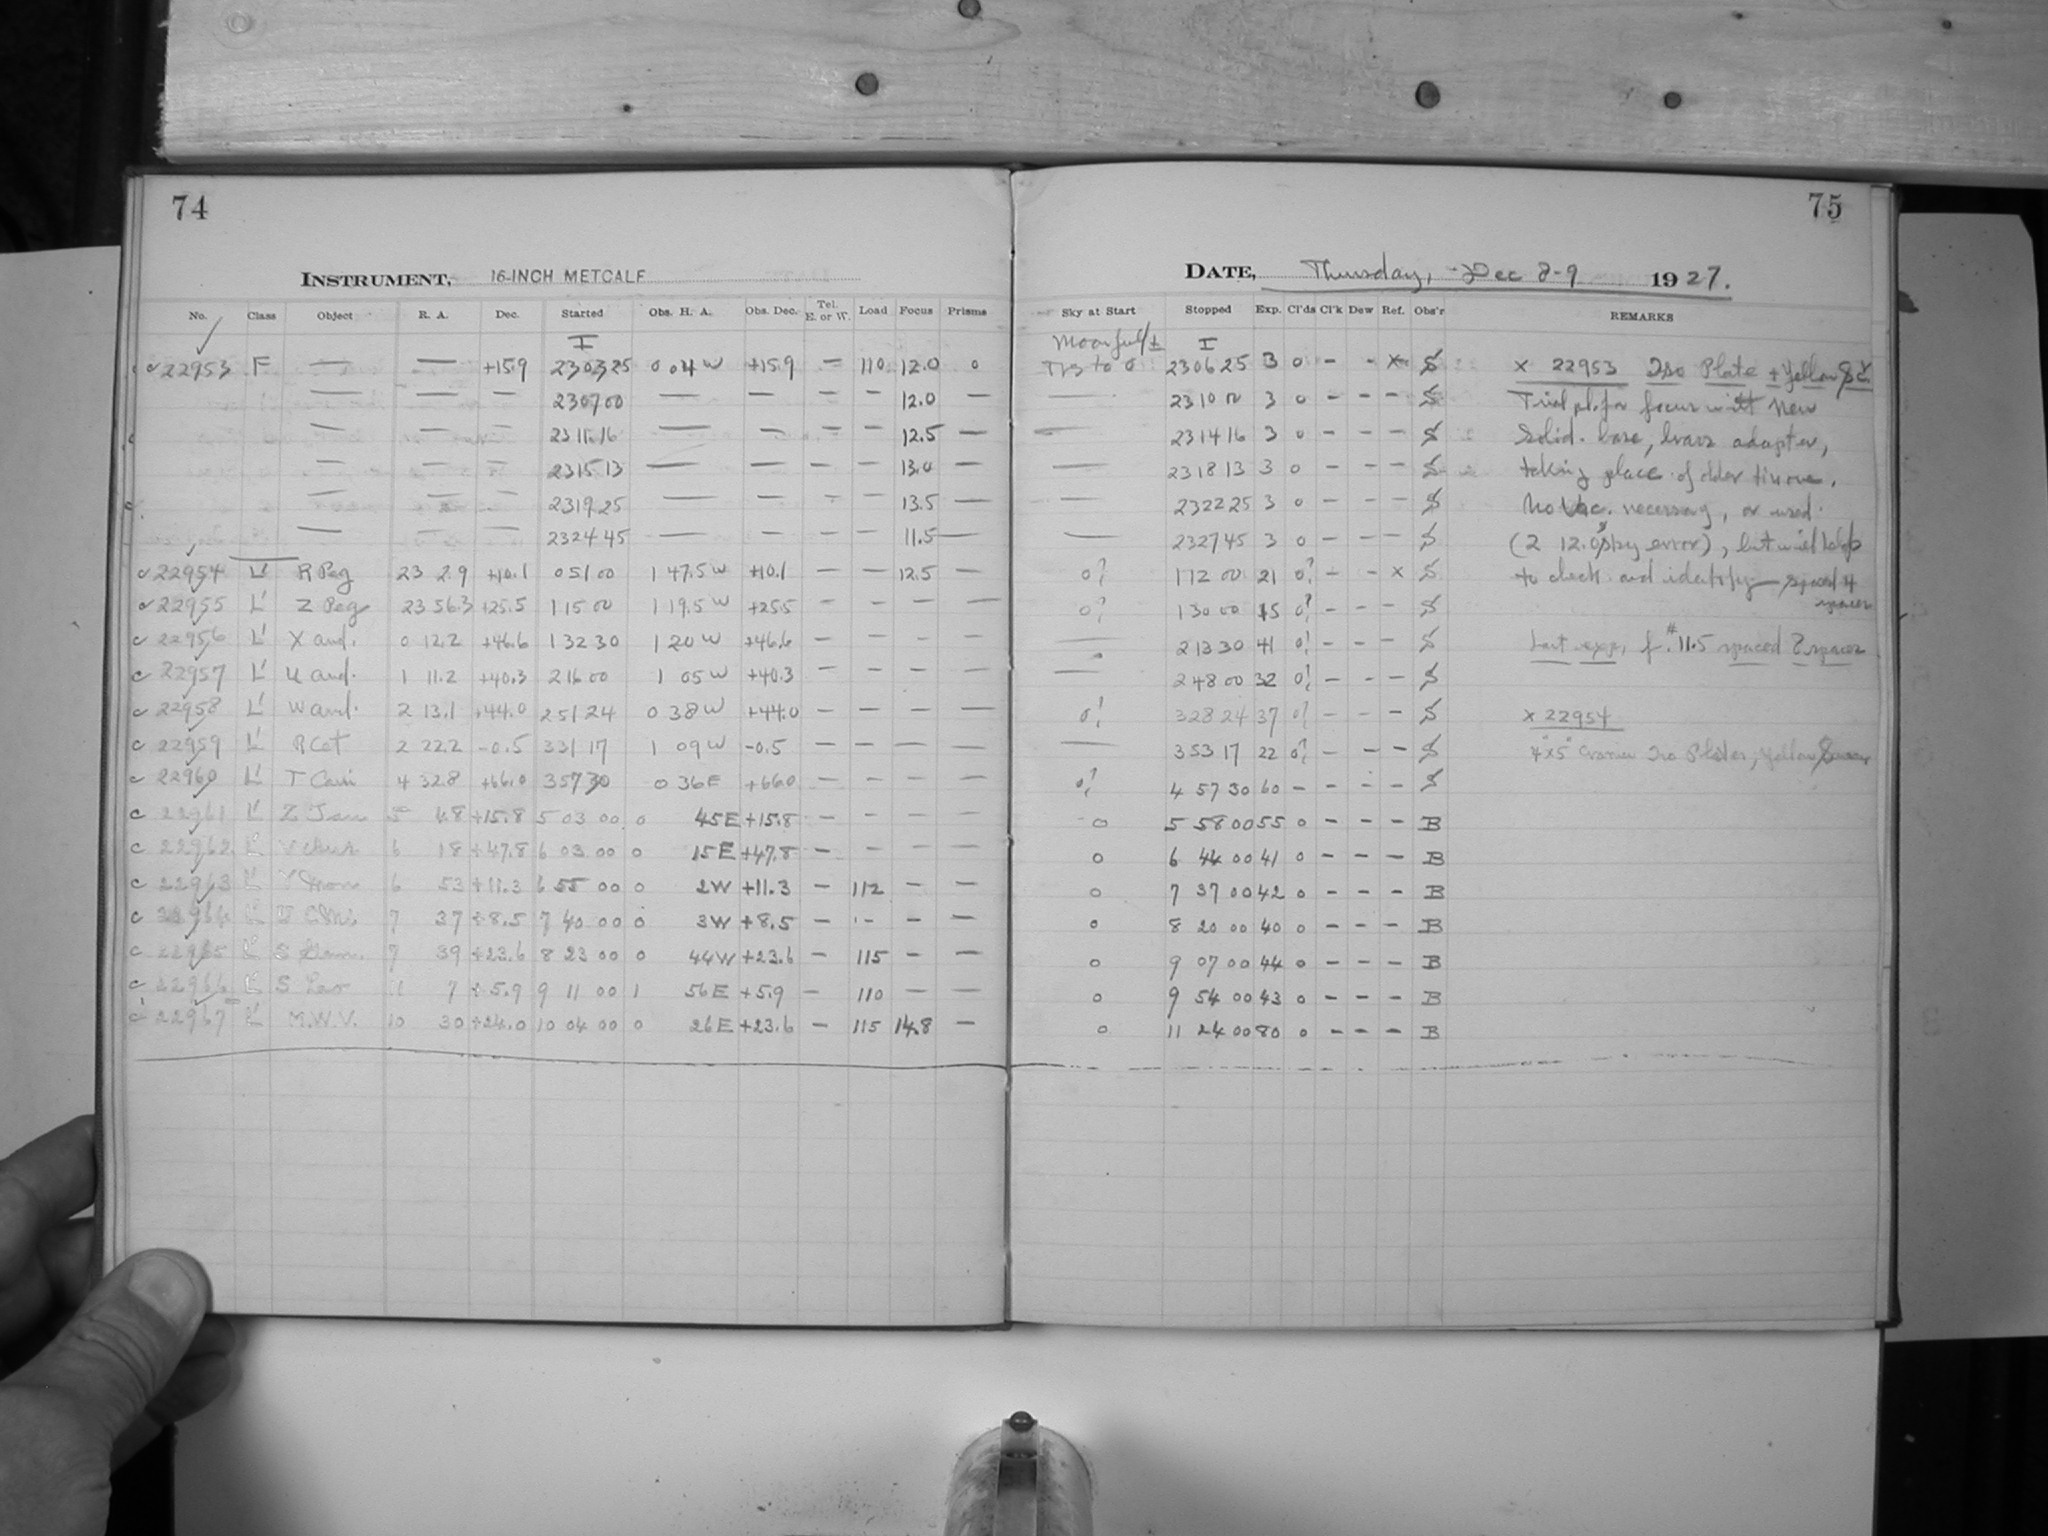 74
INSTRUMENT, 16-INCH METCALF
No. Class Object R. A. Dec. Started Obs. H. A. Obs. Dec. Tel. E. or W. Load Focus Prisms
I
c 22953 F — — +15.9 23 03 25 0 04 W +15.9 — 110 12.0 0
— — — 23 07 00 — — — — 12.0 —
— — — 23 11 16 — — — — 12.5 —
— — — 23 15 13 — — — — 13.0 —
— — — 23 19 25 — — — — 13.5 —
— — — 23 24 45 — — — — 11.5 —
c 22954 L' R Peg 23 2.9 +10.1 0 51 00 1 47.5 W +10.1 — — 12.5 —
c 22955 L' Z Peg 23 56.3 +25.5 1 15 00 1 19.5 W +25.5 — — — —
c 22956 L' X And. 0 12.2 +46.6 1 32 30 1 20 W +46.6 — — — —
c 22957 L' U And. 1 11.2 +40.3 2 16 00 1 05 W +40.3 — — — —
c 22958 L' W And. 2 13.1 +44.0 2 51 24 0 38 W +44.0 — — — —
c 22959 L' R Cet 2 22.2 -0.5 3 31 17 1 09 W -0.5 — — — —
c 22960 L' T Cam 4 32.8 +66.0 3 57 30 0 36 E +66.0 — — — —
c 22961 L' 5 48 +15.8 5 03 00 0 45 E +15.8 — — — —
c 22962 L' 6 18 +47.8 6 03 00 0 15 E +47.8 — — — —
c 22963 L' V Mon 6 53 +11.3 6 55 00 0 2 W +11.3 — 112 — —
c 22964 L' U CMi. 7 37 +8.5 7 40 00 0 3 W +8.5 — - — —
c 22965 L' S Gem. 7 39 +23.6 8 23 00 0 44 W +23.6 — 115 — —
c 22966 L' S Leo 11 7 +5.9 9 11 00 1 56 E +5.9 — 110 — —
c 22967 L' M.W.V. 10 30 +24.0 10 04 00 0 26 E +23.6 — 115 14.8 —
75
DATE, Thursday, Dec 8-9 1927.
Sky at Start Stopped Exp. Cl'ds Cl'k Dew Ref. Obs'r REMARKS
Moon full ± I
to 0 23 06 25 3 0 - - x S x 22953 Iso Plate + Yellow Sc.
— 23 10 00 3 0 - - - S Trial pl. for focus with New
— 23 14 16 3 0 - - - S Solid base, brass adapter,
— 23 18 13 3 0 - - - S taking place of older tin one.
— 23 22 25 3 0 - - - S No Vac. necessary, or used.
— 23 27 45 3 0 - - - S (2 12.0s by error), but will help
0? 1 12 00 21 0? - - x S to check and identify — spaced 4 spaces
0? 1 30 00 15 0? - - - S
— 2 13 30 41 0? - - - S Last exp, f. #11.5 spaced 8 spaces
— 2 48 00 32 0? - - - S
0? 3 28 24 37 0? - - - S x 22954
— 3 53 17 22 0? - - - S 4"x5" Cramer Iso Plates, Yellow Screen
0? 4 57 30 60 - - - - S
0 5 58 00 55 0 - - - B
0 6 44 00 41 0 - - - B
0 7 37 00 42 0 - - - B
0 8 20 00 40 0 - - - B
0 9 07 00 44 0 - - - B
0 9 54 00 43 0 - - - B
0 11 24 00 80 0 - - - B